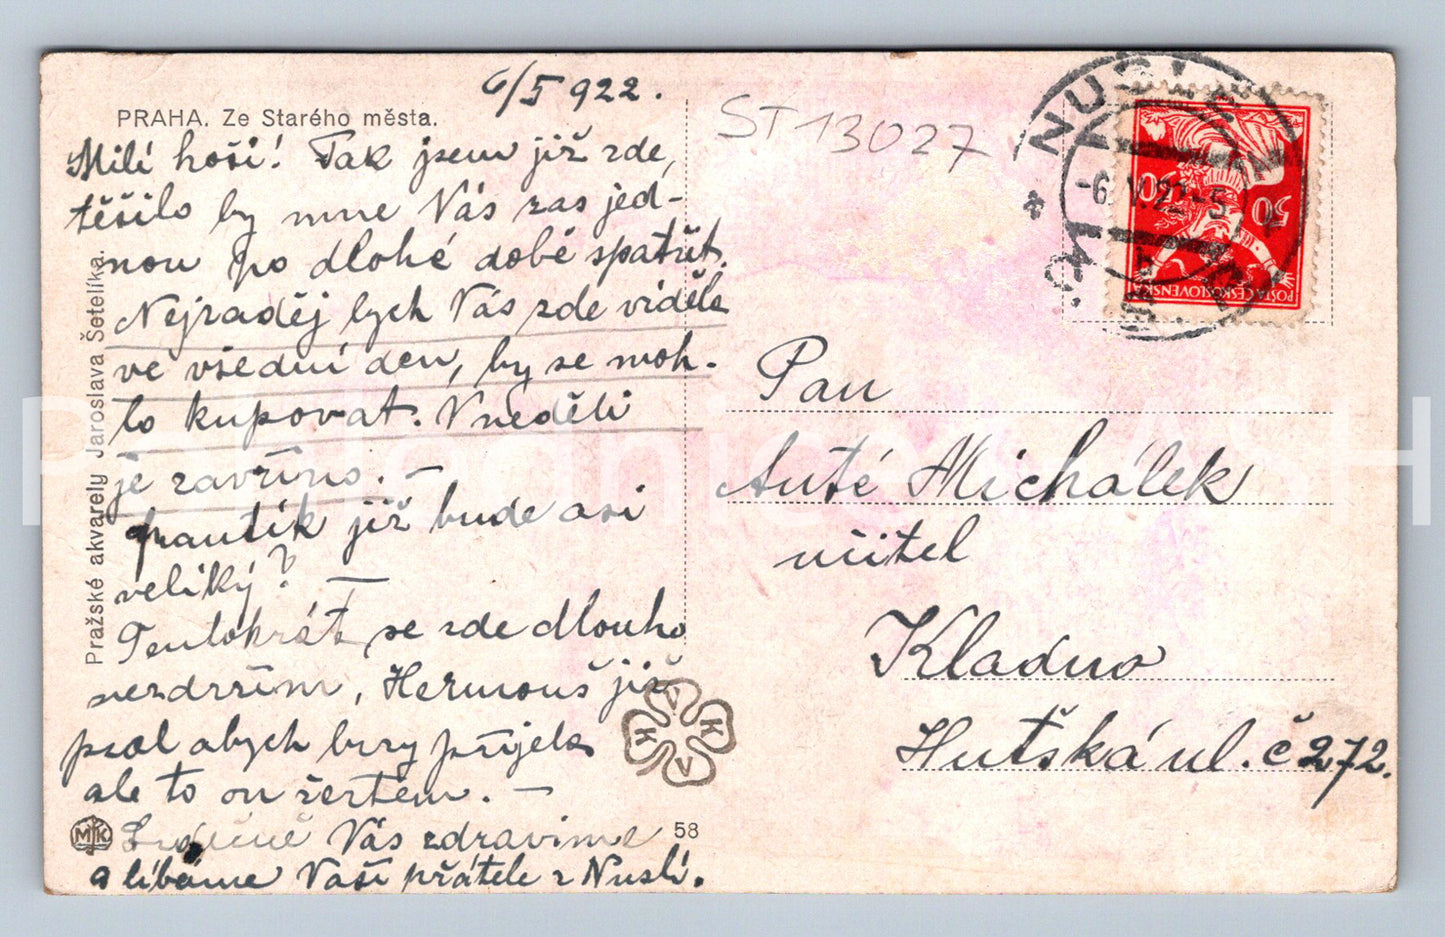 6/5 922.
PRAHA. Ze Starého města.
Milí hoši! Tak jsem již zde,
těšilo by mne Vás zas jed-
nou po dlohé době spatřit.
Nejraděj bych Vás zde viděla
ve všední den, by se moh-
lo kupovat. V neděli
je zavříno. –
Frantík již bude asi
veliký? –
Tentokrát se zde dlouho
nezdržím, Hermouš již
psal abych brzy přijela
ale to on žertem. –
Srdečně Vás zdravíme
a líbáme Vaši přátele z Nuslí.
Pražské akvarely Jaroslava Šetelíka.
MK
58
V K V K
ST 13027
NUSLE
-6.V.22-5
b
50 50
POŠTA ČESKOSLOVENSKÁ
Pan
Anté Michálek
učitel
Kladno
Huťská ul. č 272.
Pohlednice SH